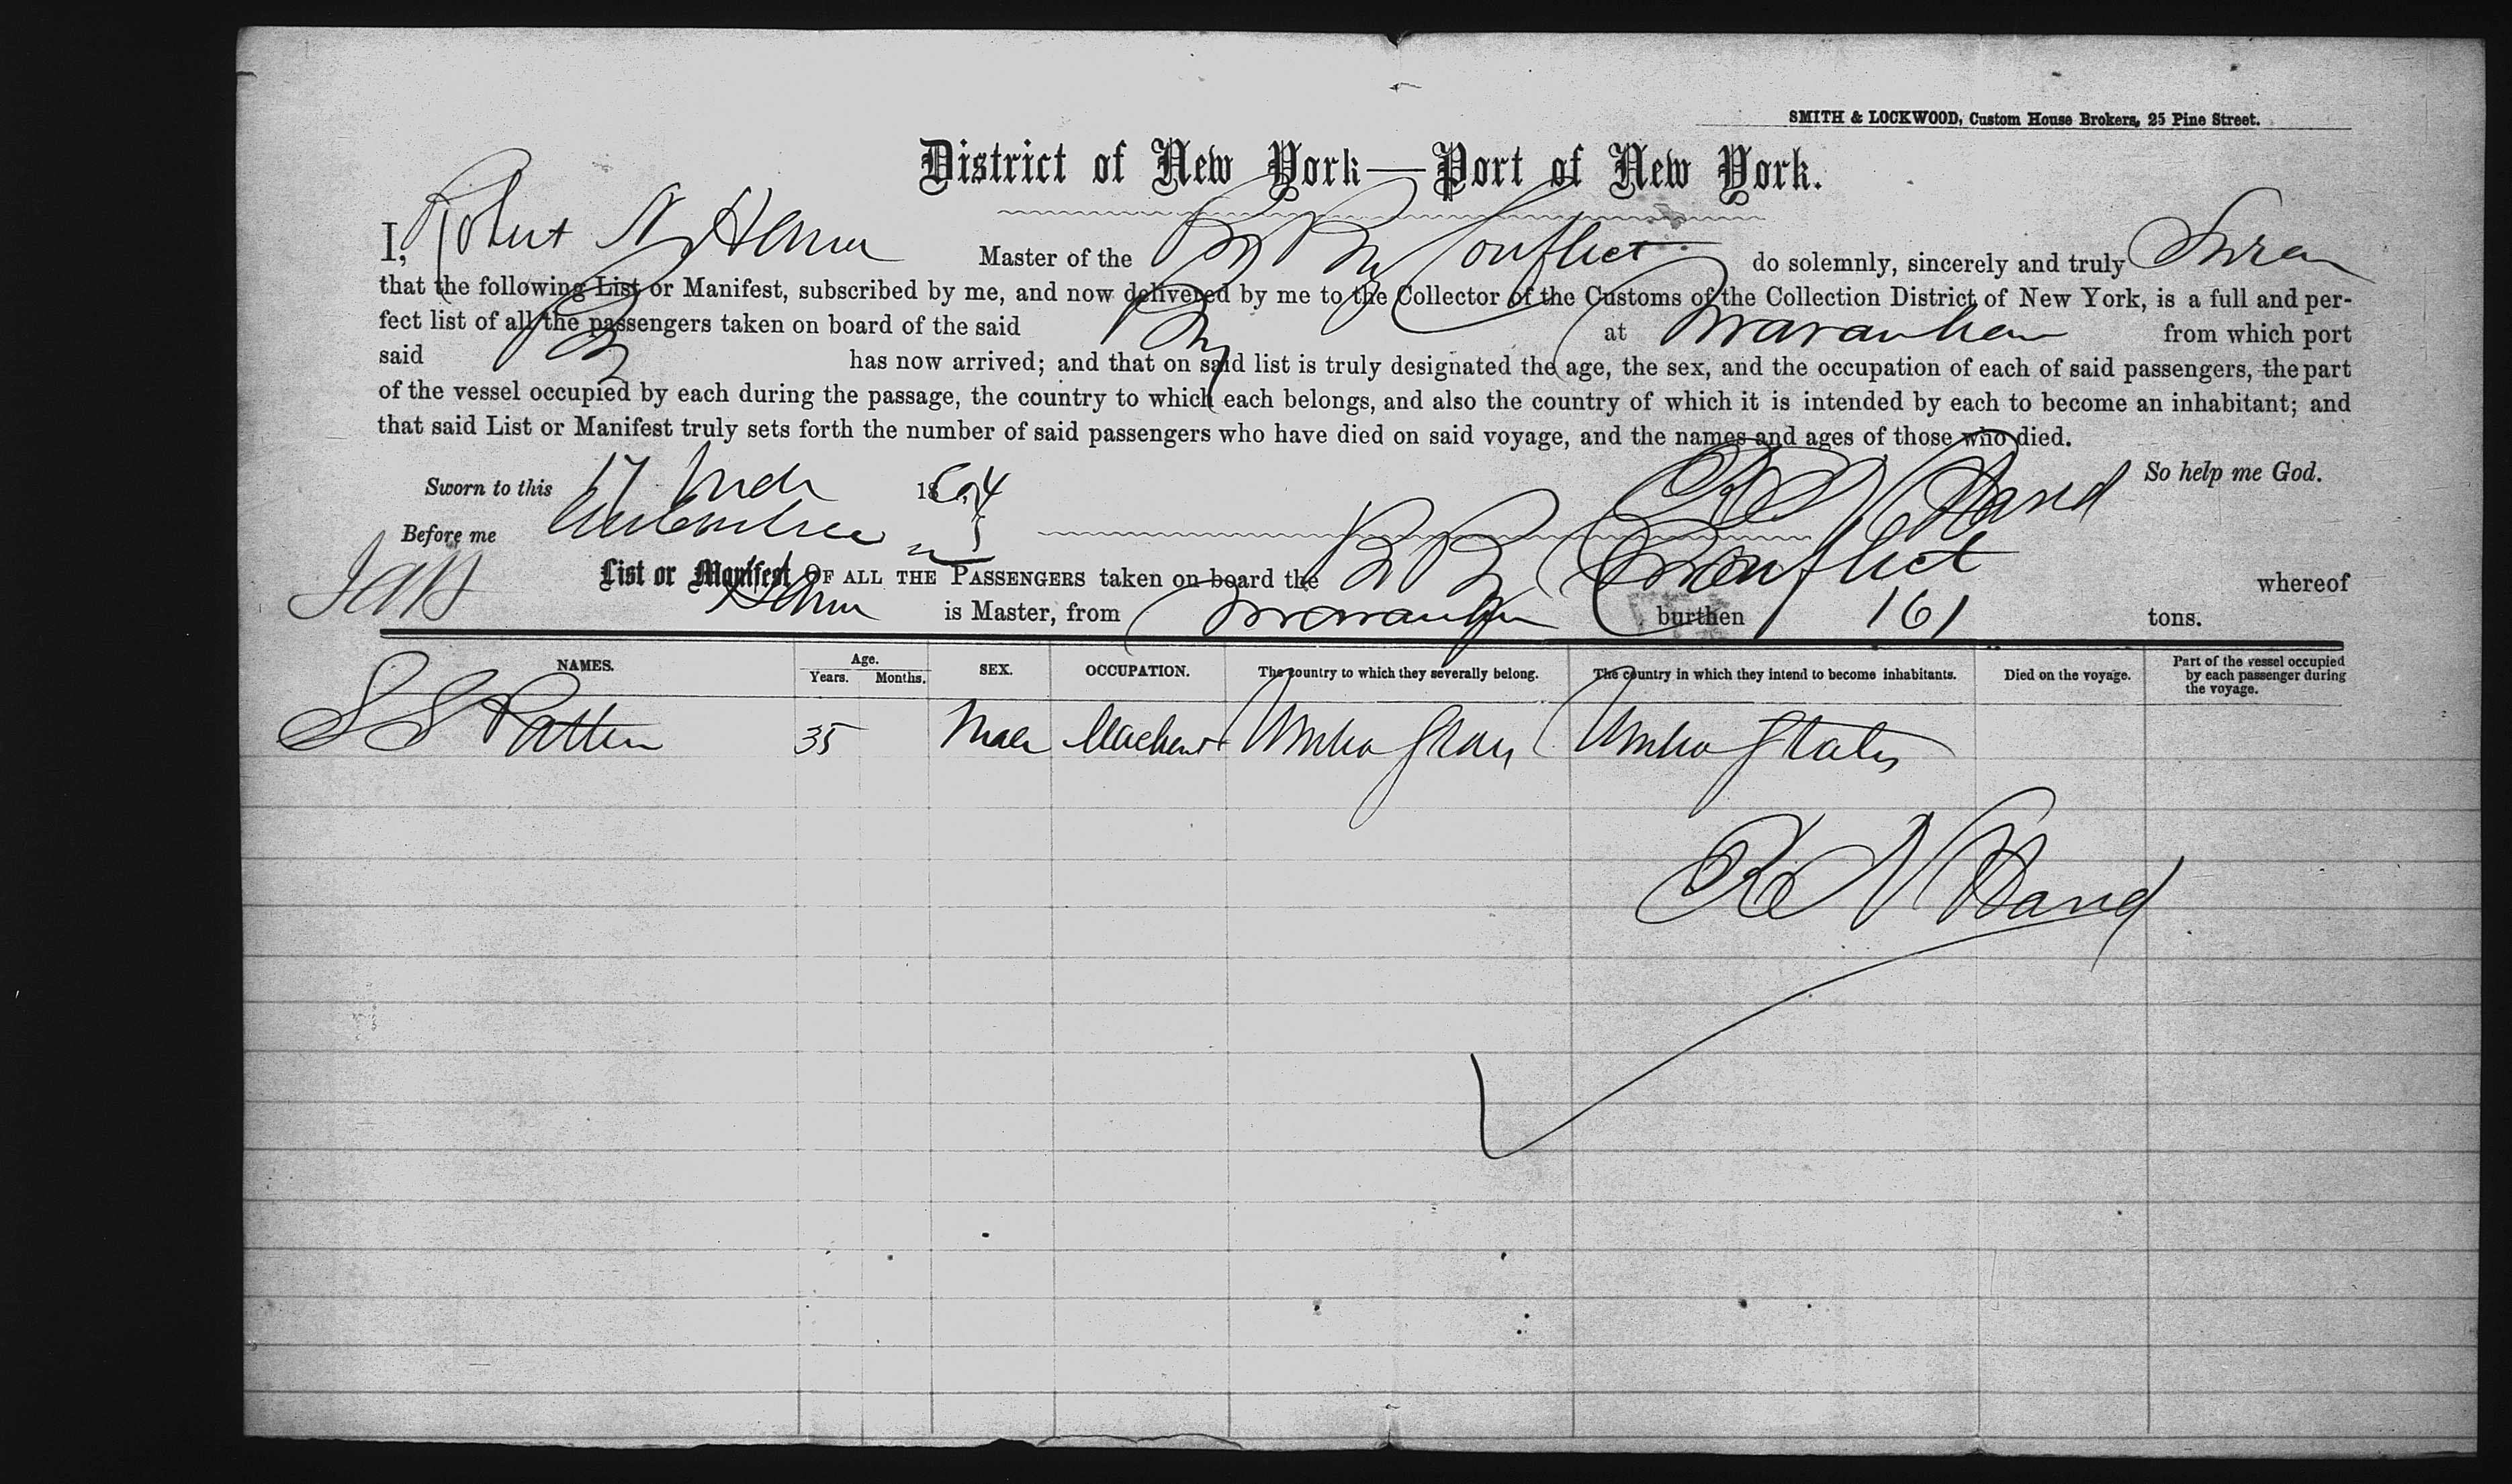 SMITH & LOCKWOOD, Custom House Brokers, 25 Pine Street.
District of New York—Port of New York.
I, Robert N Master of the Br Brig Conflict do solemnly, sincerely and truly Swear
that the following List or Manifest, subscribed by me, and now delivered by me to the Collector of the Customs of the Collection District of New York, is a full and per-
fect list of all the passengers taken on board of the said Brig at Maranham from which port
said Brig has now arrived; and that on said list is truly designated the age, the sex, and the occupation of each of said passengers, the part
of the vessel occupied by each during the passage, the country to which each belongs, and also the country of which it is intended by each to become an inhabitant; and
that said List or Manifest truly sets forth the number of said passengers who have died on said voyage, and the names and ages of those who died.
So help me God.
Sworn to this 17 1864
Before me
List or Manifest OF ALL THE PASSENGERS taken on board the Br Brig Conflict whereof
is Master, from Maranham burthen 161 tons.
NAMES. Age. Years. Months. SEX. OCCUPATION. The country to which they severally belong. The country in which they intend to become inhabitants. Died on the voyage. Part of the vessel occupied by each passenger during the voyage.
S S Patten 35 Male Machinist United States United States